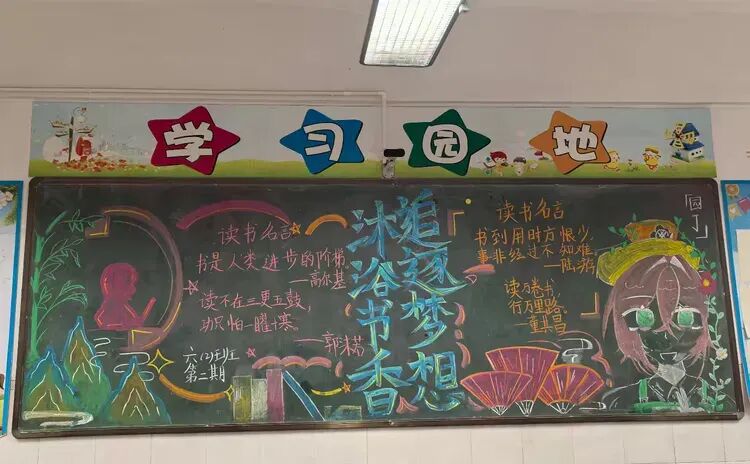 学习园地
读书名言
书是人类进步的阶梯,
—高尔基
读不在三更五鼓,
功只怕一曝十寒。
—郭沫若
六(2)班
第二期
追逐梦想
沐浴书香
读书名言
书到用时方恨少,
事非经过不知难
—陆游
读万卷书,
行万里路。
董其昌
「园丁」